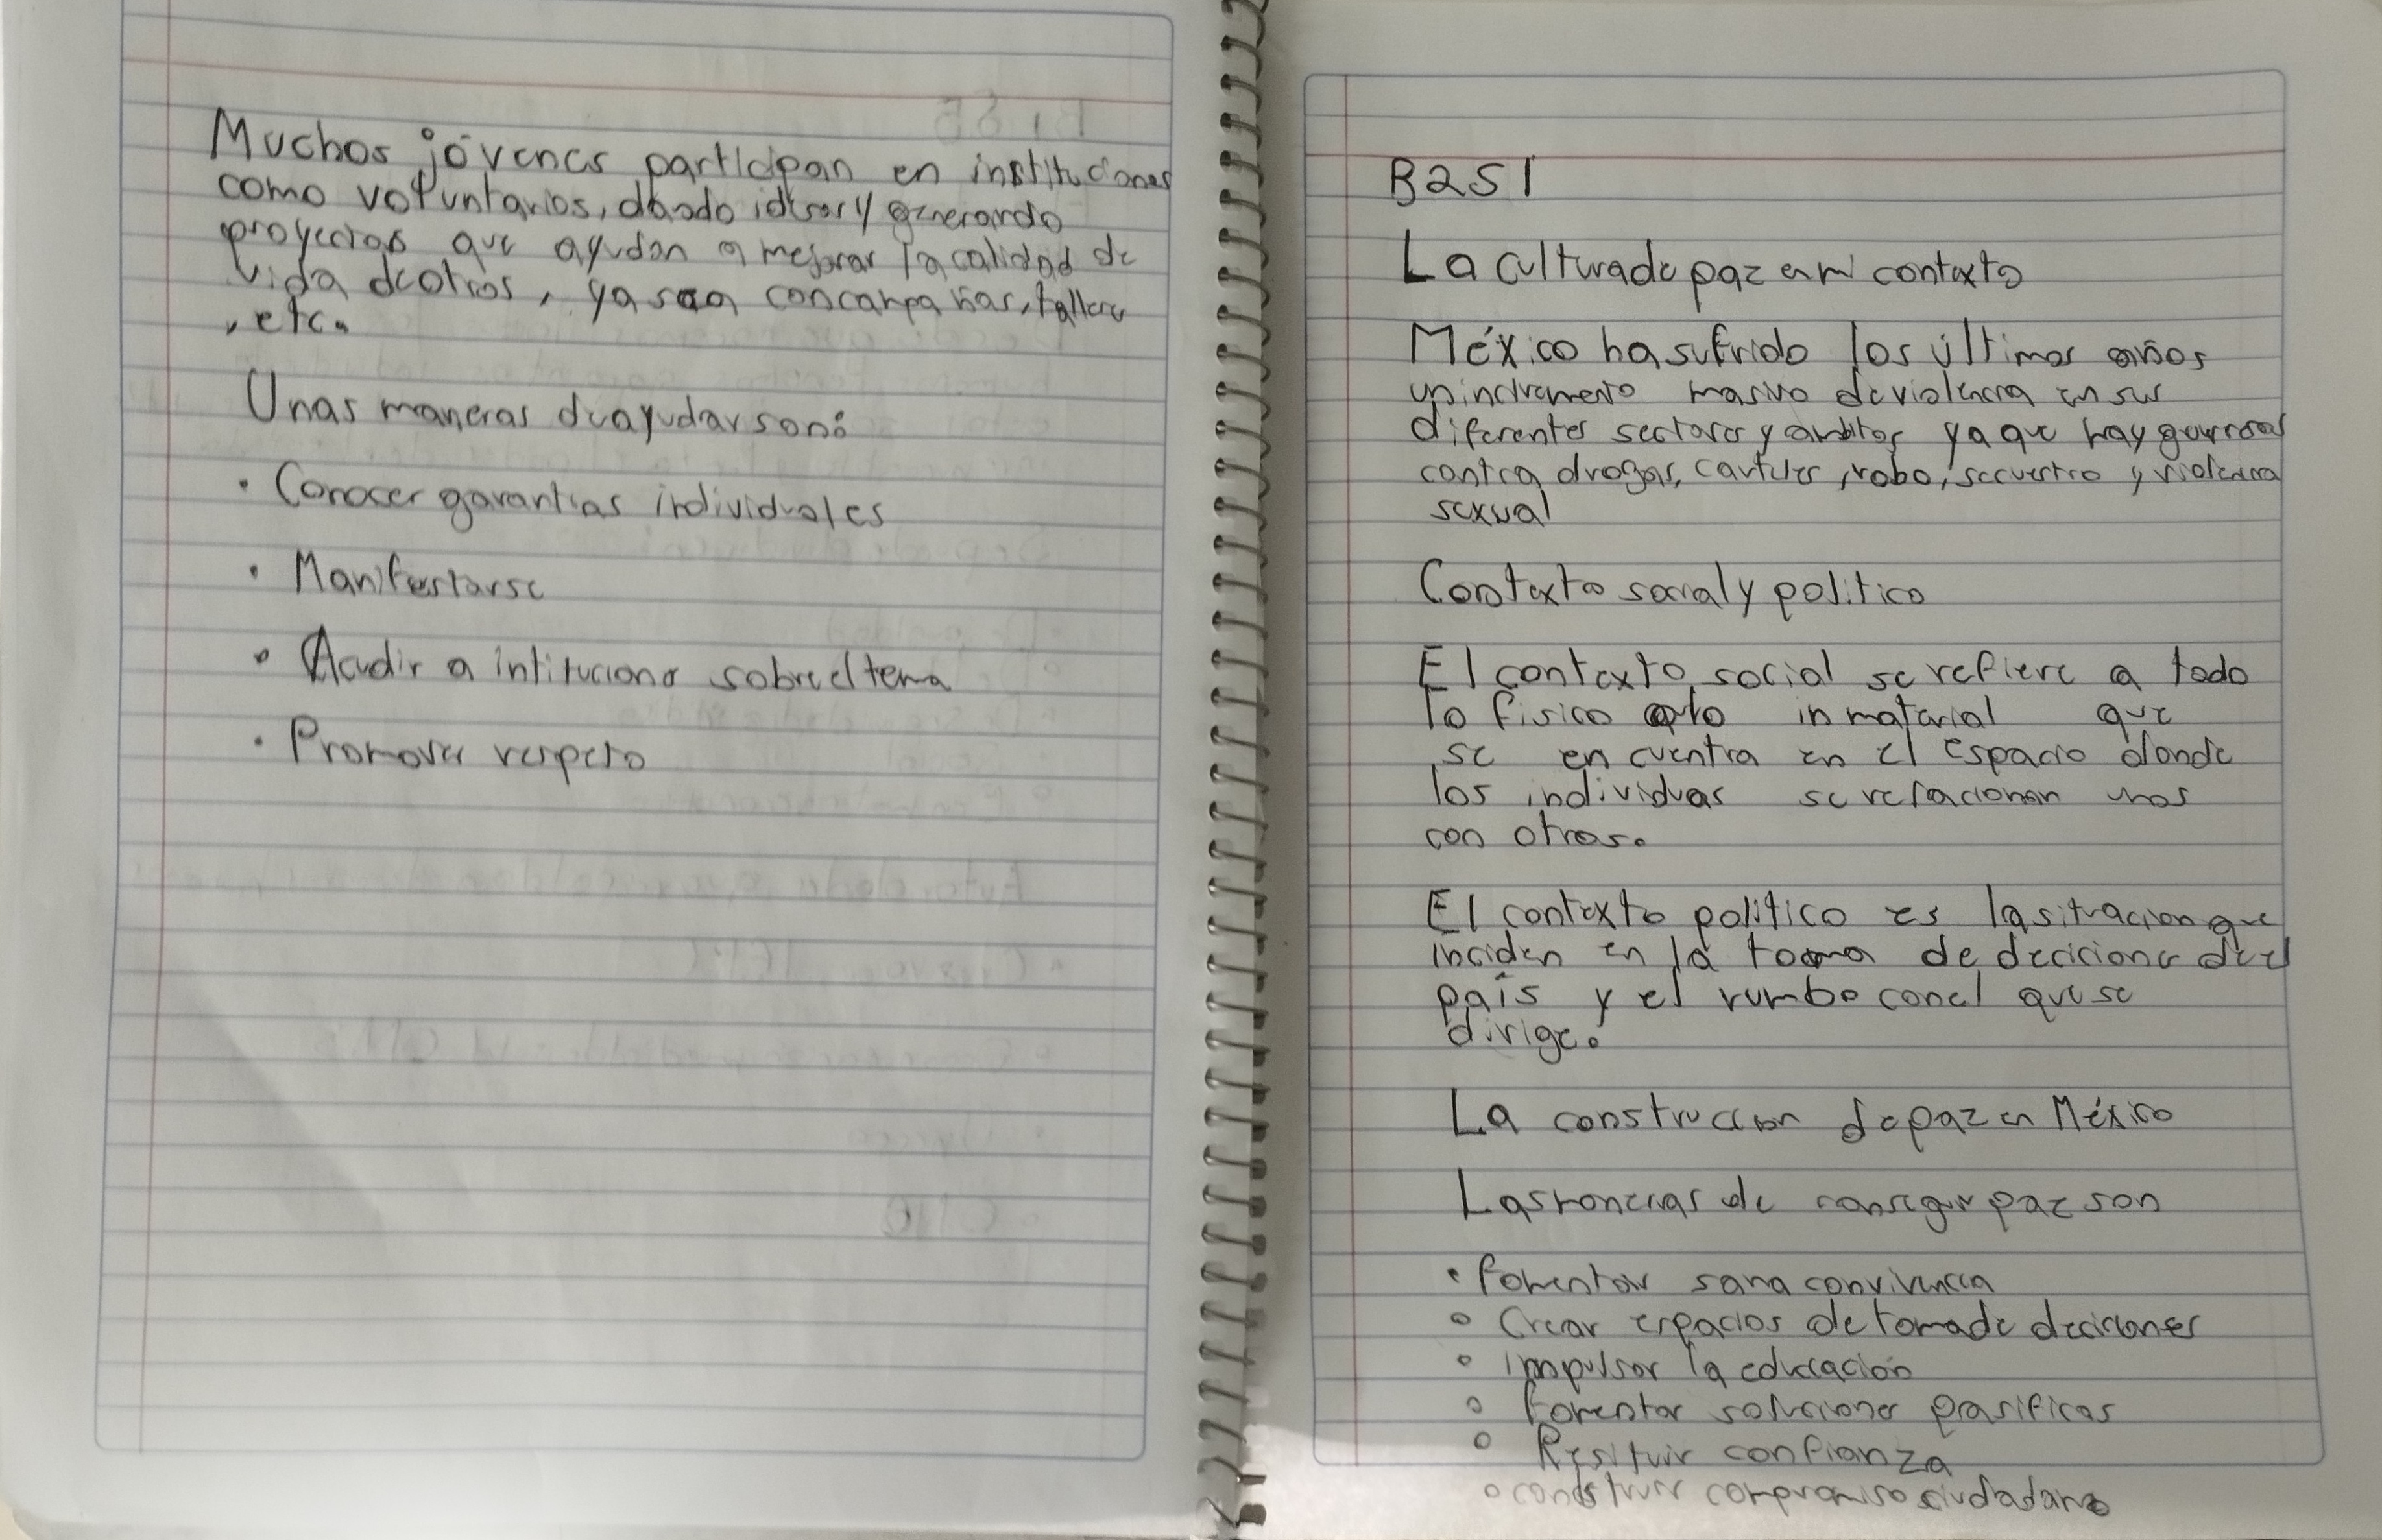 Muchos jóvenes participan en instituciones
como voluntarios, dando ideas y generando
proyectos que ayudan a mejorar la calidad de
vida de otros, ya sea con campañas, talleres
, etc.
Unas maneras de ayudar son:
• Conocer garantias individuales
• Manifestarse
• Acudir a intituciones sobre el tema
• Promover respeto
B2S1
La cultura de paz en mi contexto
México ha sufrido los últimos años
un incremento masivo de violencia en sus
diferentes sectores y ambitos ya que hay guerras
contra drogas, carteles, robo, secuestro y violencia
sexual
Contexto social y politico
El contexto social se refiere a todo
lo fisico o lo inmaterial que
se encuentra en el espacio donde
los individuos se relacionan unos
con otros.
El contexto politico es la situacion que
inciden en la toma de deciciones del
país y el rumbo con el que se
dirige.
La construccion de paz en México
Las maneras de conseguir paz son
• Fomentar sana convivencia
• Crear espacios de toma de deciciones
• impulsar la educación
• Fomentar soluciones pasificas
• Resituir confianza
• construir compromiso ciudadano